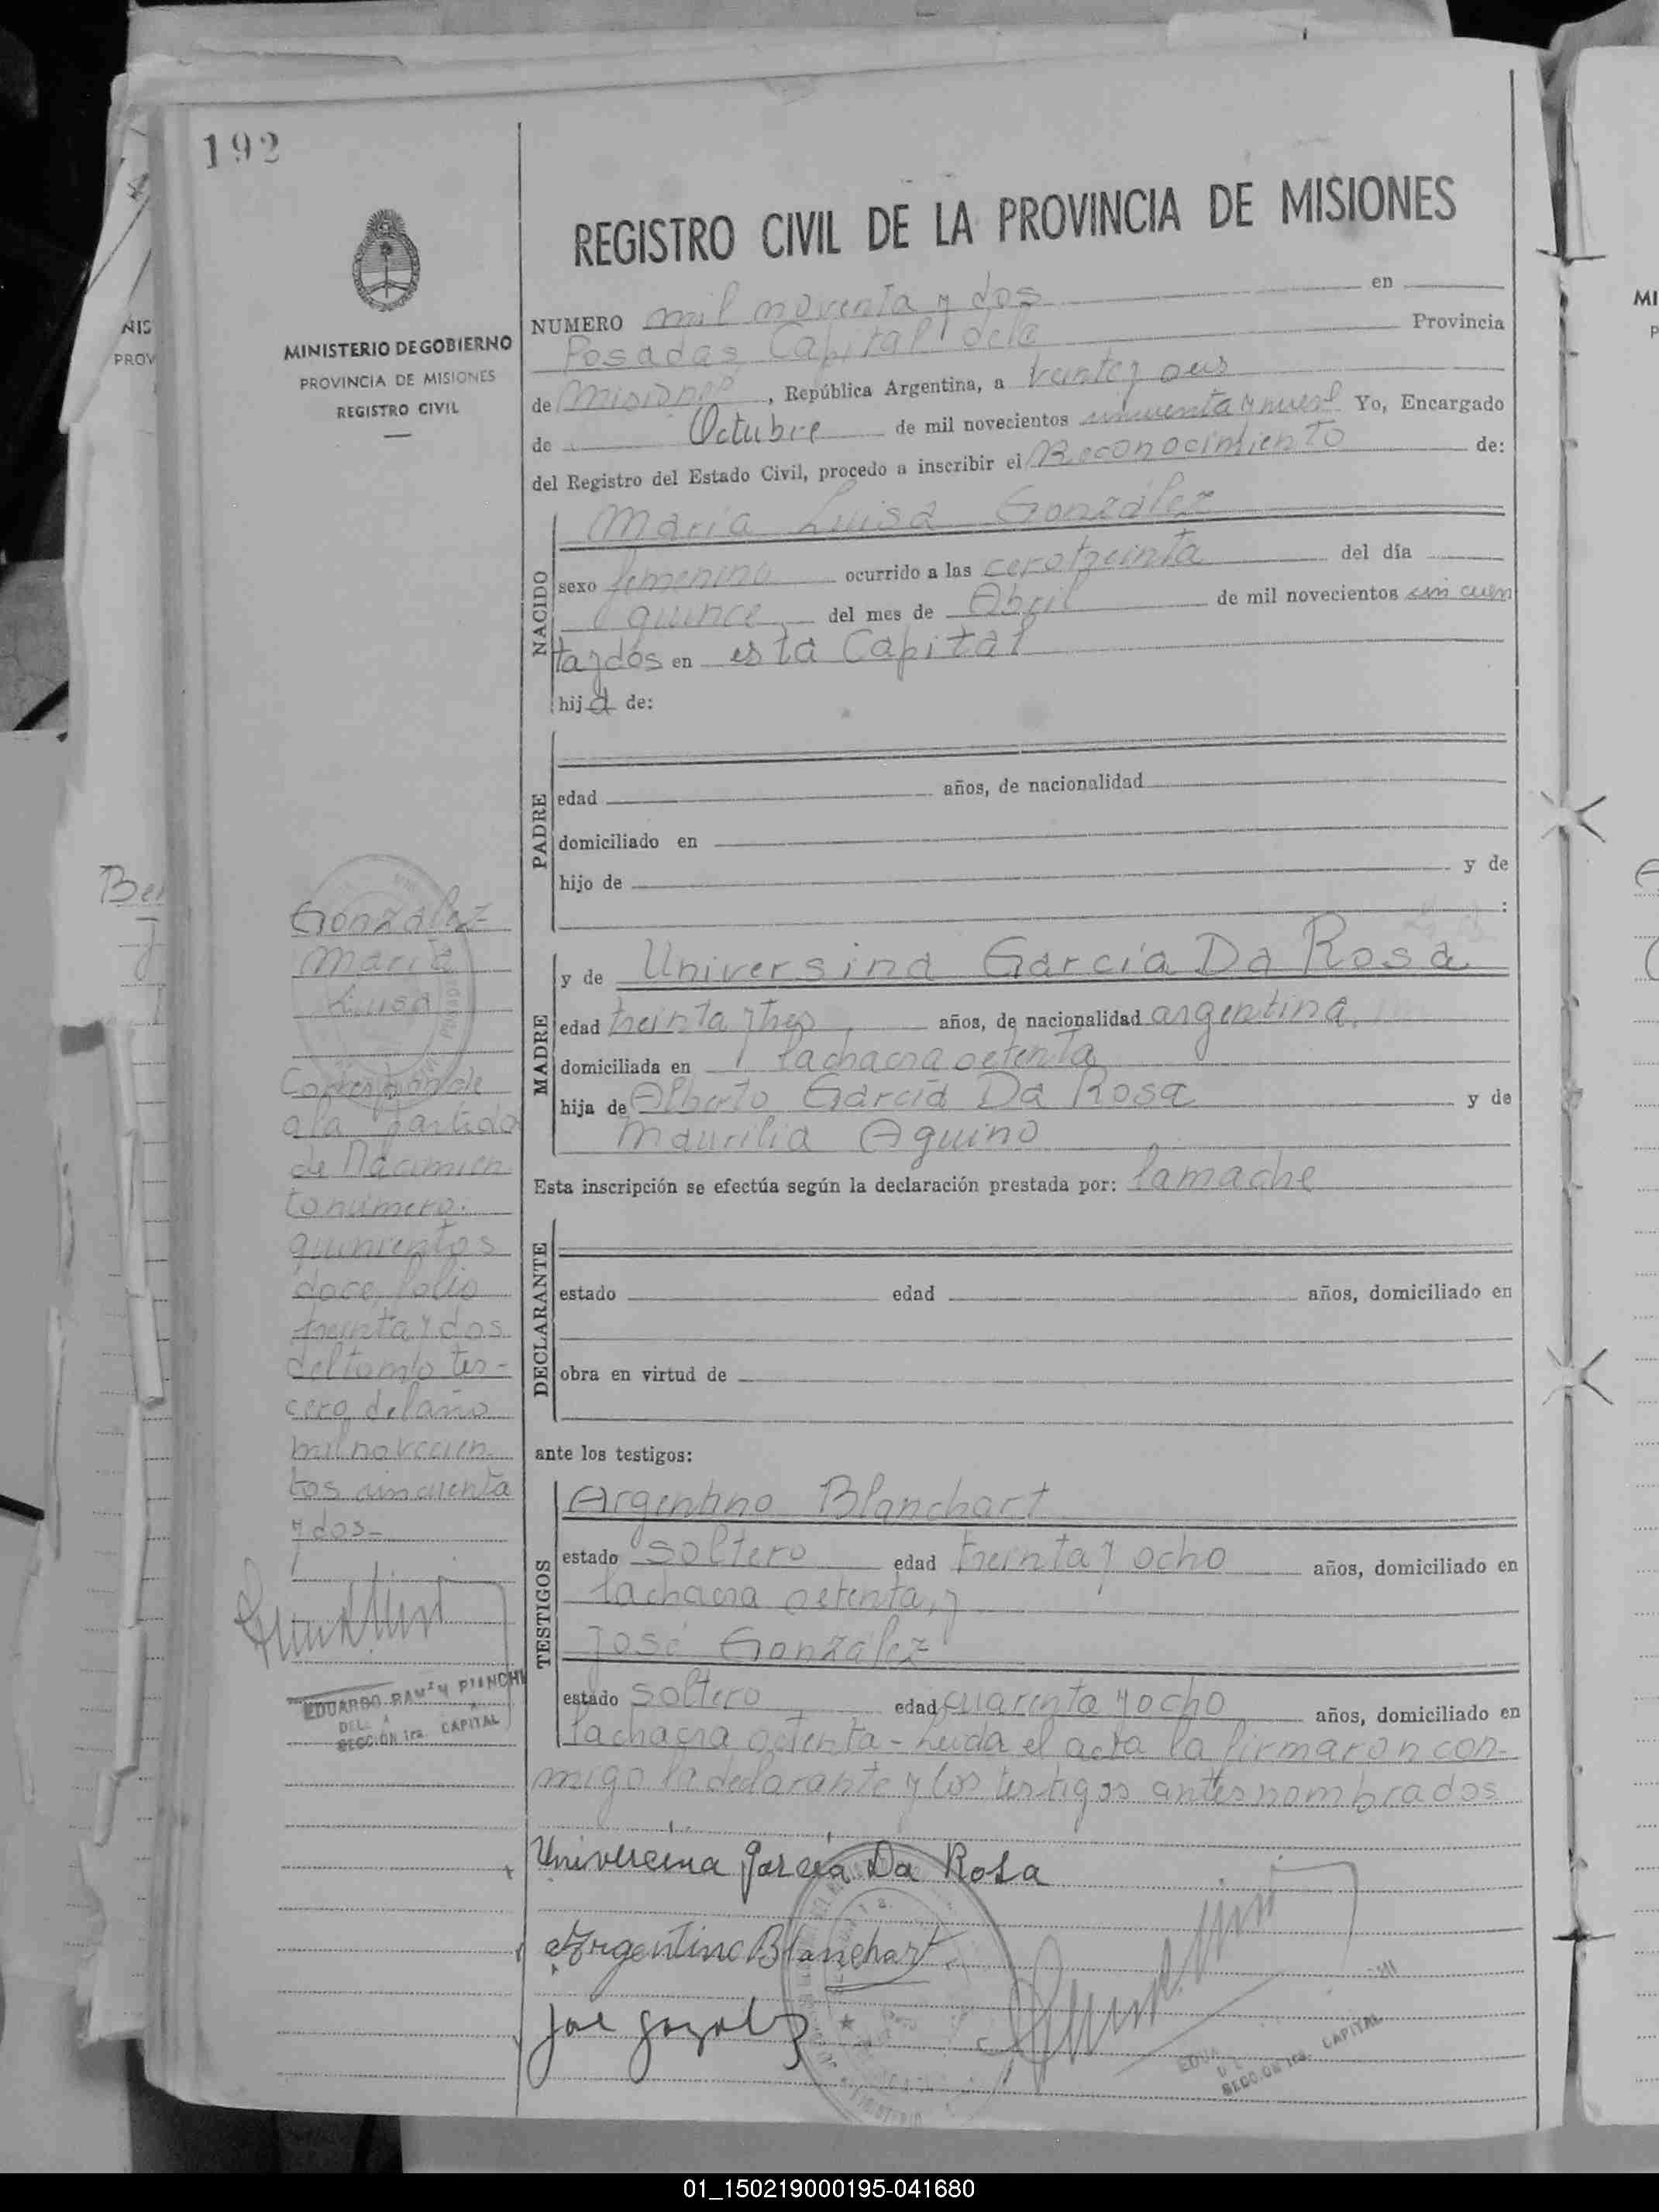 192
MINISTERIO DE GOBIERNO
PROVINCIA DE MISIONES
REGISTRO CIVIL
REGISTRO CIVIL DE LA PROVINCIA DE MISIONES
NUMERO mil noventa y dos en
Posadas Capital dela Provincia
de Misiones, República Argentina, a
de Octubre de mil novecientos cincuenta y nueve Yo, Encargado
del Registro del Estado Civil, procedo a inscribir el Reconocimiento de:
NACIDO
María Luisa González
sexo femenino ocurrido a las cero treinta del día
quince del mes de Abril de mil novecientos cin cuen
ta y dos en esta Capital
hija de:
PADRE
edad años, de nacionalidad
domiciliado en
hijo de y de
:
MADRE
y de Universina García Da Rosa
edad treinta y tres años, de nacionalidad argentina,
domiciliada en la chacra setenta
hija de Alberto García Da Rosa y de
Maurilia Aquino
Esta inscripción se efectúa según la declaración prestada por: lamache
DECLARANTE
estado edad años, domiciliado en
obra en virtud de
ante los testigos:
TESTIGOS
Argentino Blanchart
estado soltero edad treinta y ocho años, domiciliado en
la chacra setenta, y
José González
estado soltero edad cuarenta y ocho años, domiciliado en
la chacra setenta - Leida el acta la firmaron con-
migo la declarante y los testigos antes nombrados
Universina García Da Rosa
Argentino Blanchart
José Gonzalez
González
María
Luisa
Corresponde
a la partida
de Nacimien
to número
quinientos
doce folio
treinta y dos
del tomo ter-
cero del año
mil novecien-
tos cincuenta
y dos-
EDUARDO
SECCION 1ra. CAPITAL
SECCION 1ra. CAPITAL
MI
P
NIS
PROV
Ber
01_150219000195-041680